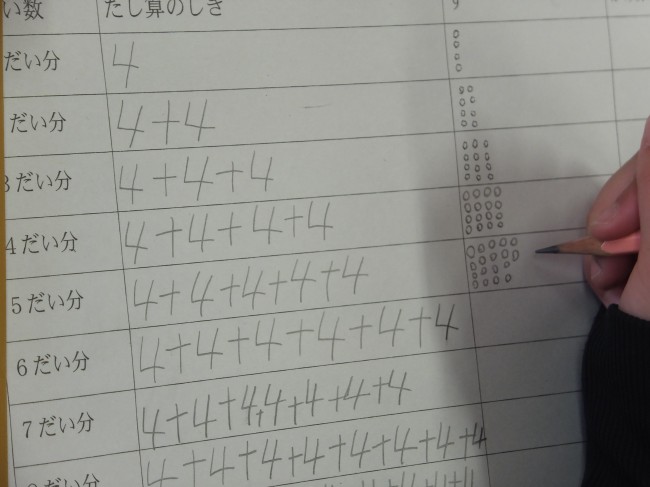 い数 たし算のしき
だい分 4
だい分 4+4
3だい分 4+4+4
4だい分 4+4+4+4
5だい分 4+4+4+4+4
6だい分 4+4+4+4+4+4
7だい分 4+4+4+4+4+4+4
4+4+4+4+4+4+4+4